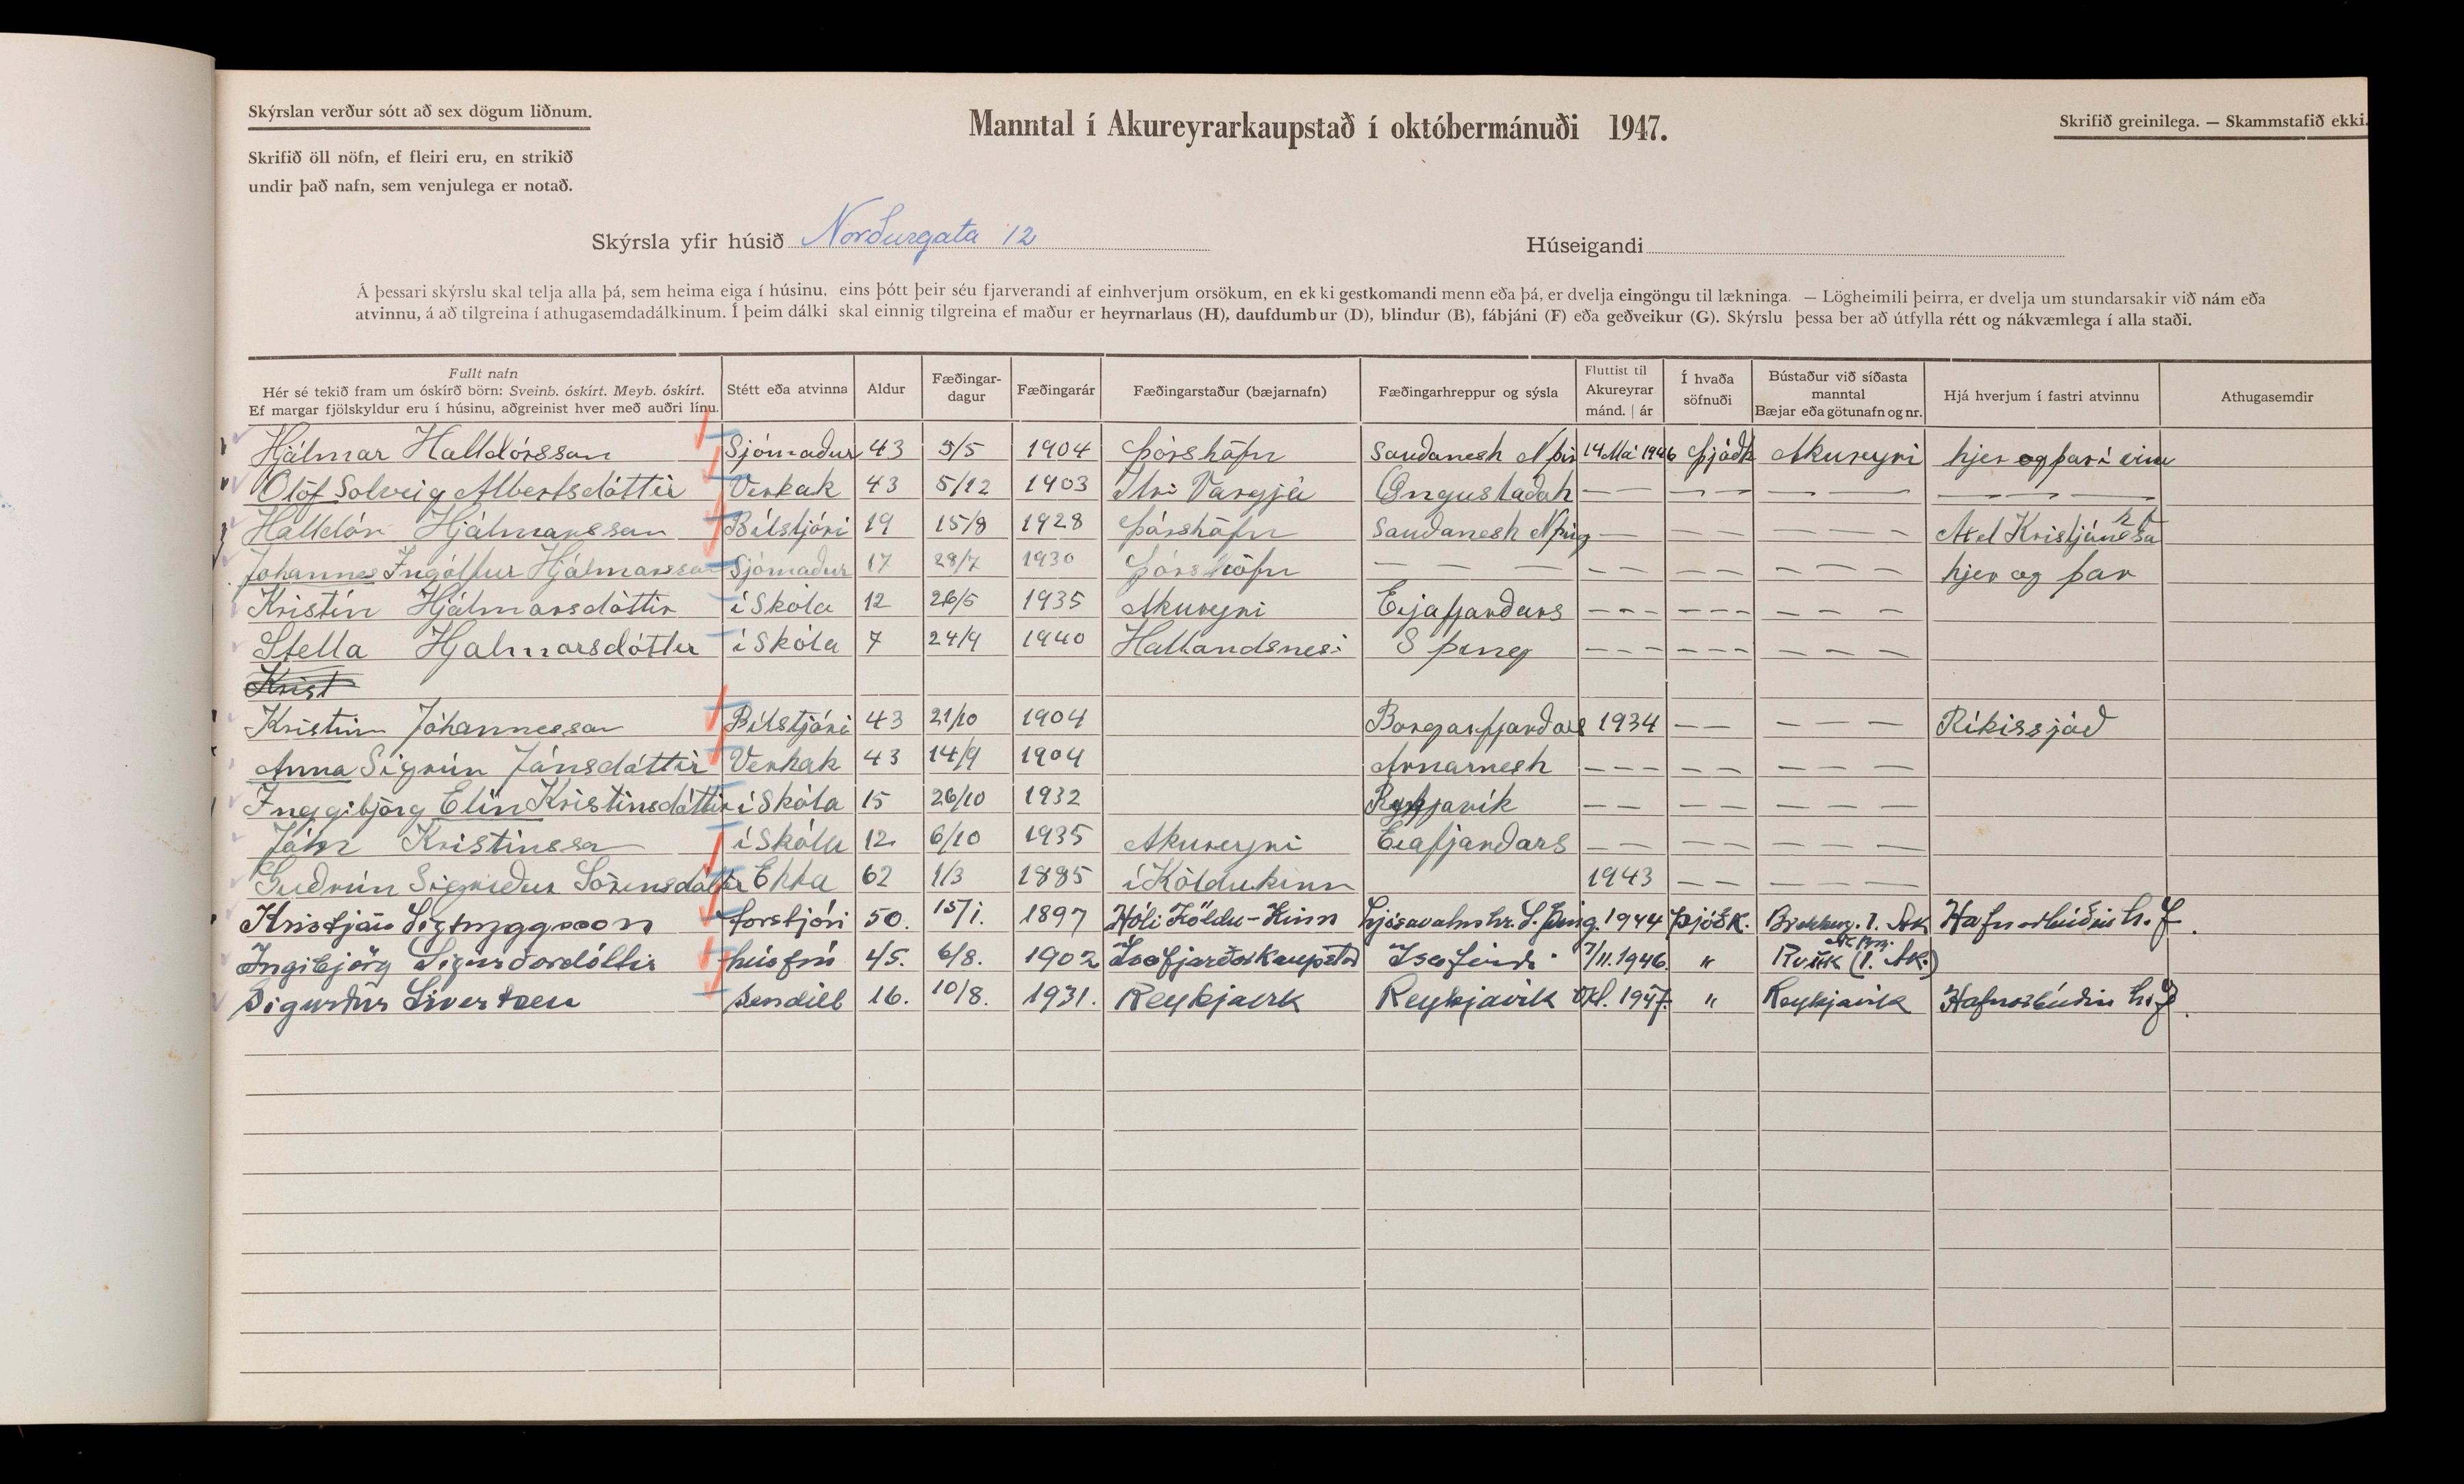 Skýrslan verður sótt að sex dögum liðnum.
Skrifið öll nöfn, ef fleiri eru, en strikið
undir það nafn, sem venjulega er notað.
Manntal í Akureyrarkaupstað í októbermánuði 1947.
Skrifið greinilega. — Skammstafið ekki.
Skýrsla yfir húsið Norðurgata 12
Húseigandi
Á þessari skýrslu skal telja alla þá, sem heima eiga í húsinu, eins þótt þeir séu fjarverandi af einhverjum orsökum, en ekki gestkomandi menn eða þá, er dvelja eingöngu til lækninga. — Lögheimili þeirra, er dvelja um stundarsakir við nám eða
atvinnu, á að tilgreina í athugasemdadálkinum. Í þeim dálki skal einnig tilgreina ef maður er heyrnarlaus (H), daufdumbur (D), blindur (B), fábjáni (F) eða geðveikur (G). Skýrslu þessa ber að útfylla rétt og nákvæmlega í alla staði.
Fullt nafn
Hér sé tekið fram um óskírð börn: Sveinb. óskírt. Meyb. óskírt.
Ef margar fjölskyldur eru í húsinu, aðgreinist hver með auðri línu.
Stétt eða atvinna
Aldur
Fæðingar-
dagur
Fæðingarár
Fæðingarstaður (bæjarnafn)
Fæðingarhreppur og sýsla
Fluttist til
Akureyrar
mánd. | ár
Í hvaða
söfnuði
Bústaður við síðasta
manntal
Bæjar eða götunafn og nr.
Hjá hverjum í fastri atvinnu
Athugasemdir
Hjálmar Halldórsson Sjómaður 43 5/5 1904 Þórshöfn Sauðanesh N þin 14 Maí 1946 Þjóðk Akureyri hjer og þar í vinu
Ólöf Solveig Albertsdóttir Verkak 43 5/12 1903 Itri Vargjá Öngustaðah — — — — — — — — — —
Halldór Hjálmarsson Bílstjóri 19 15/8 1928 Þórshöfn Sauðanesh N þing — — — — — — — Axel Kristjánssa h f
Jóhannes Ingólfur Hjálmarsson Sjómaður 17 28/7 1930 Þórshöfn — — — — — — — — — — hjer og þar
Kristín Hjálmarsdóttir í Skóla 12 26/5 1935 Akureyri Eyjafjarðars — — — — — — — — —
Stella Hjalmarsdóttir í Skóla 7 24/9 1940 Hallandsnesi S þing — — — — — — — — —
Krist
Kristinn Jóhannesson Bílstjóri 43 21/10 1904 Borgarfjarðars 1934 — — — — — Ríkissjóð
Anna Sigrún Jónsdóttir Verkak 43 14/9 1904 Arnarnesh — — — — — — — —
Inggibjörg Elín Kristinsdóttir í Skóla 15 26/10 1932 Reykjavík — — — — — — —
Jóhn Kristinsso í Skóla 12 6/10 1935 Akureyri Eiafjarðars — — — — — — —
Guðrún Sigriður Sörensdóttir Ekka 62 1/3 1885 í Köldukinn 1943 — — — — —
Kristján Sigtryggsson forstjóri 50. 15/1. 1897 Hóli Köldu-Kinn Ljósavatnshr. S. Þing. 1944 þjóðk. Brekkug. 1. Ak Hafnarbúðin h.f.
Ingibjörg Sigurðardóttir húsfrú 45. 6/8. 1902 Ísafjarðarkaupstað 7/11. 1946. " Rvík (1. Ak.)
Sigurður Sivertsen sendill 16. 10/8. 1931. Reykjavík Reykjavík okt. 1947. " Reykjavík Hafnarbúðin h.f.